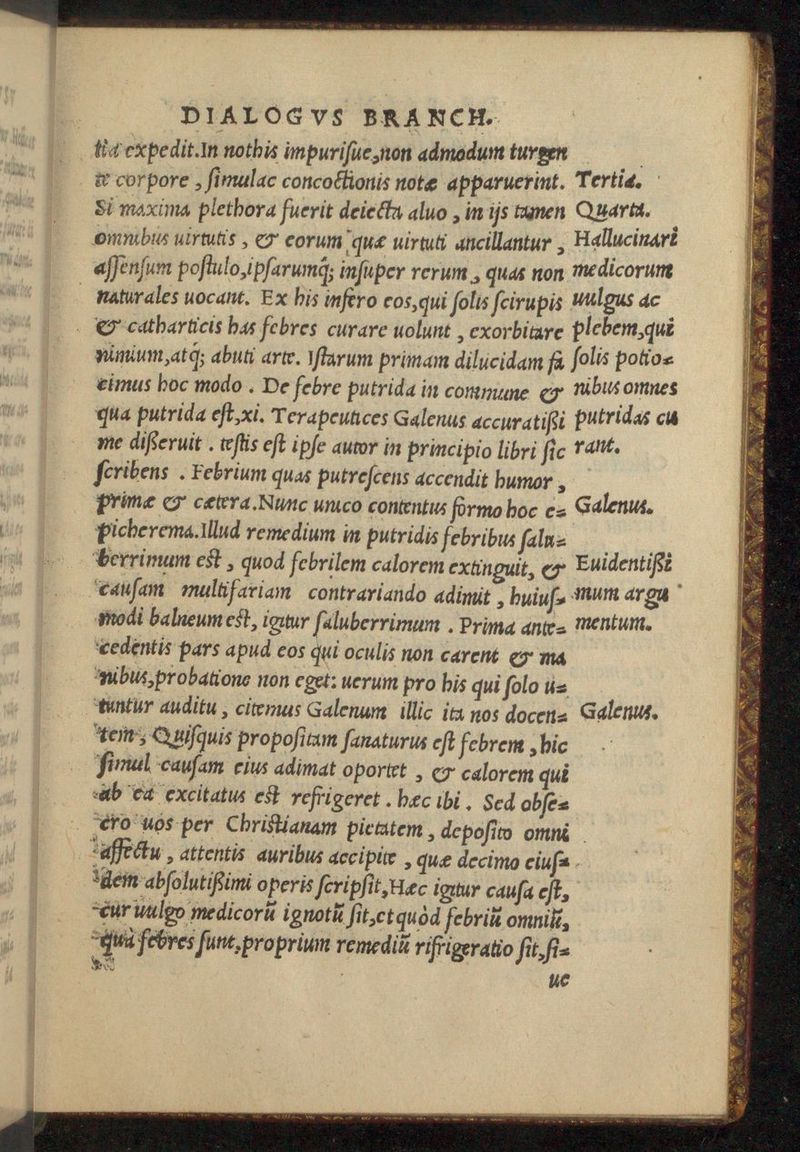 DIALOGVS BRANCH.
tia expedit.In nothis impurisúe,non admodum turgen
te corpore , simulac concoctionis notæ apparuerint. Tertia.
Si maxima plethora fuerit deiecta aluo , in ijs tamen Quarta.
omnibus uirtutis , & eorum quæ uirtuti ancillantur , Hallucinari
assensum postulo,ipsarumq; insuper rerum , quas non medicorum
naturales uocant. Ex his infero eos,qui solis scirupis uulgus ac
& catharticis has febres curare uolunt , exorbitare plebem,qui
nimium,atq; abuti arte. Istarum primam dilucidam fa solis potio=
cimus hoc modo . De febre putrida in commune & nibus omnes
qua putrida est,xi. Terapeutices Galenus accuratißi putridas cu
me disseruit . testis est ipse autor in principio libri sic rant.
scribens . Febrium quas putrescens accendit humor ,
primæ & cætera.Nunc unico contentus sormo hoc e= Galenus.
picherema.Illud remedium in putridis febribus salu=
berrimum est , quod febrilem calorem extinguit, & Euidentißi
causam multifariam contrariando adimit , huius= mum argu
modi balneum est, igitur saluberrimum . Prima ante= mentum.
cedentis pars apud eos qui oculis non carent & ma
nibus,probatione non eget: uerum pro his qui solo u=
tuntur auditu , citemus Galenum illic ita nos docen= Galenus.
tem, Quisquis propositam sanaturus est febrem , hic
simul causam eius adimat oportet , & calorem qui
ab ea excitatus est refrigeret . hæc ibi . Sed obse=
cro uos per Christianam pietatem , deposito omni
affectu , attentis auribus accipite , quæ decimo eius=
dem absolutißimi operis scripsit,Hæc igitur causa est,
cur uulgo medicorũ ignotũ sit,et quòd febriũ omniũ,
qua febres sunt,proprium remediũ rifrigeratio sit,si=
ue